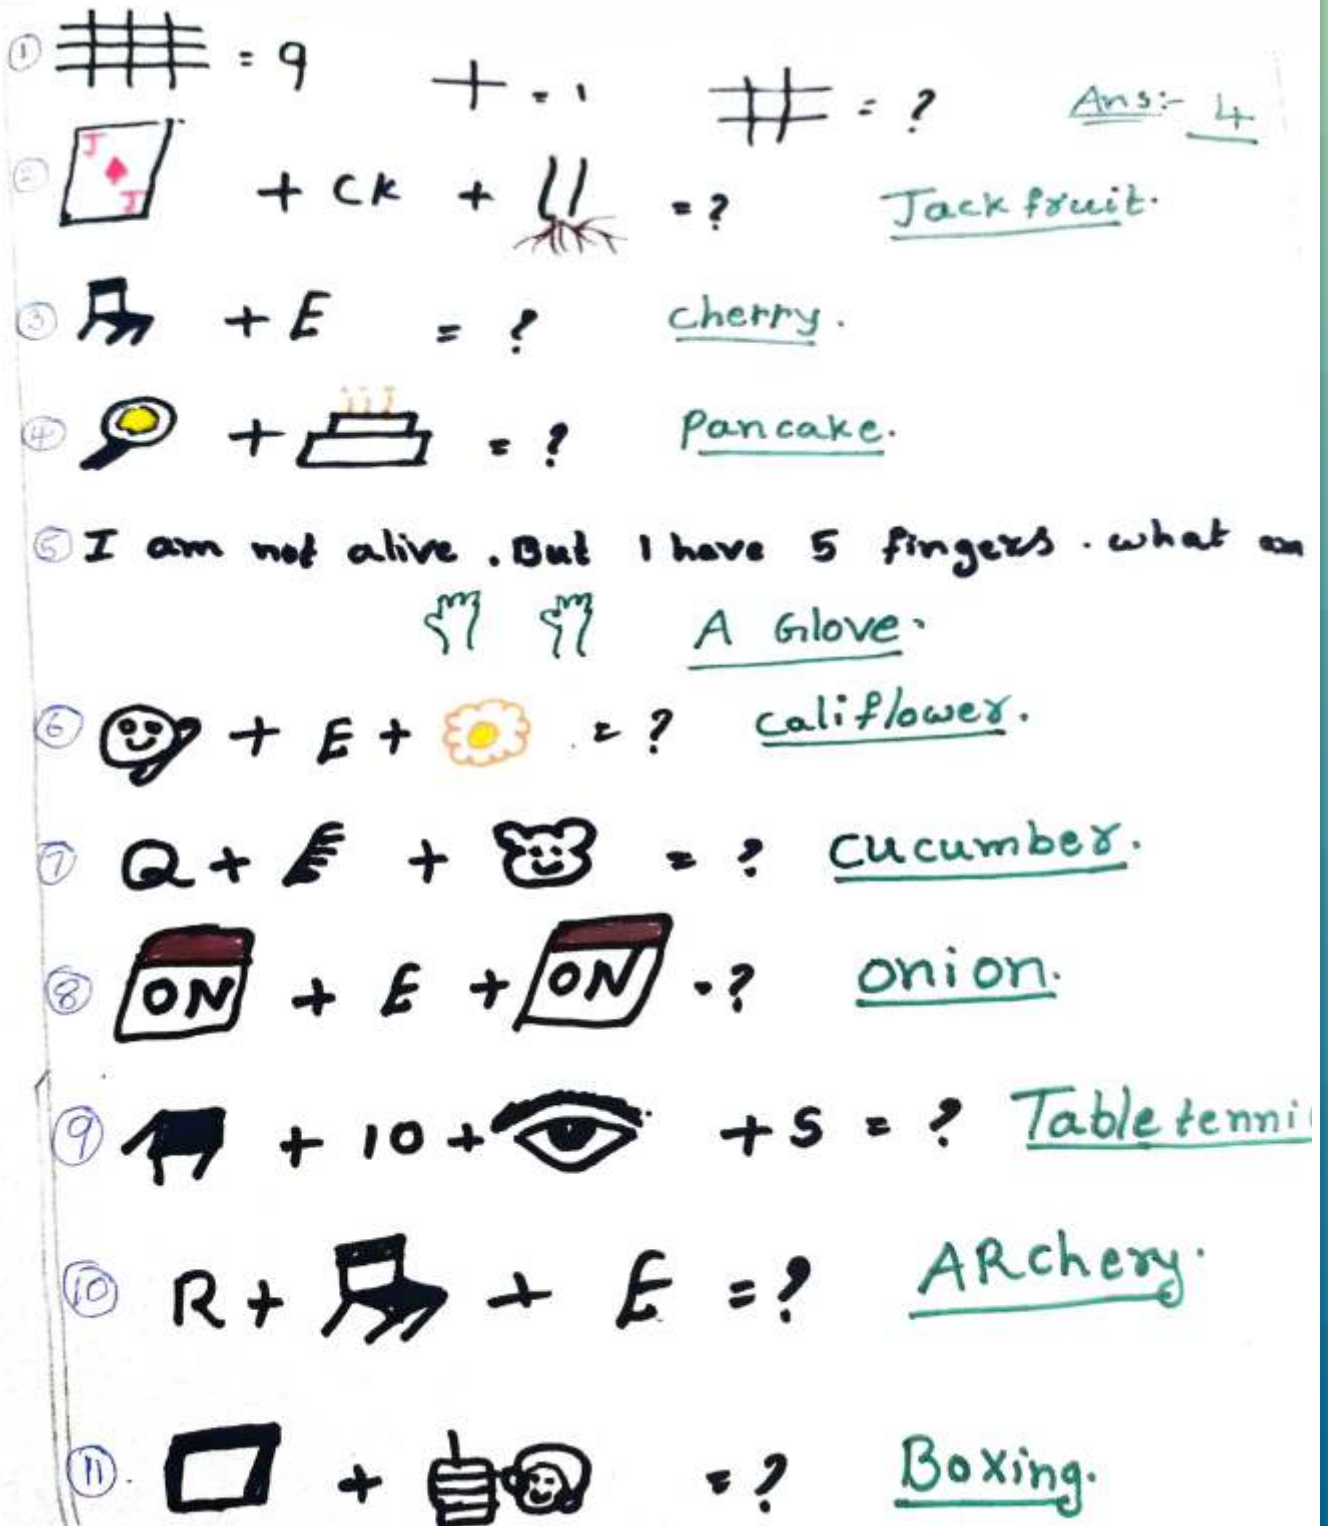 ① = 9 + = 1 = ? Ans:- 4
② J J + CK + = ? Jack fruit.
③ + E = ? cherry.
④ + = ? Pancake.
⑤ I am not alive . But I have 5 fingers . what
A Glove.
⑥ + E + = ? califlower.
⑦ Q + + = ? cucumber.
⑧ ON + E + ON = ? onion.
⑨ + 10 + + S = ? Table tenni
⑩ R + + E = ? ARchery.
⑪. + = ? Boxing.